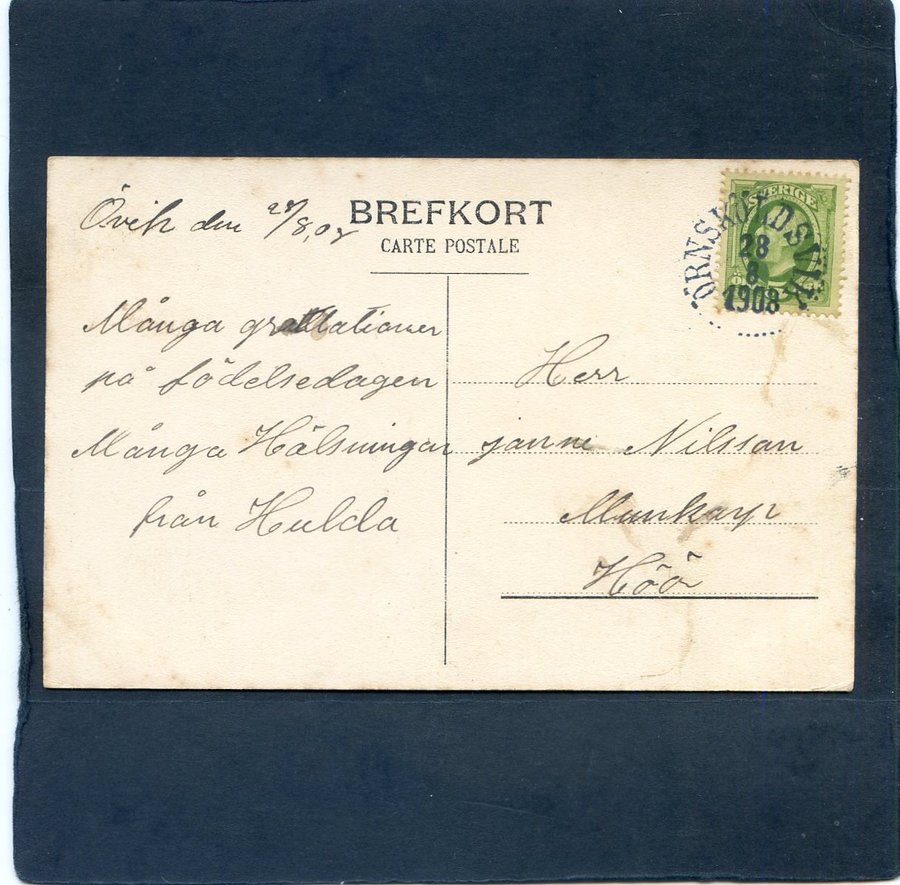 BREFKORT
CARTE POSTALE
Övik den 28/8,08
Många gratulationer
på födelsedagen
Många Hälsningar
från Hulda
SVERIGE
ÖRNSKÖLDSVIK
28
8
1908
Herr
janne Nilsson
Munkarp
Höör